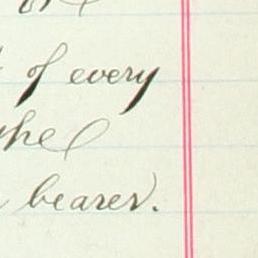 of every
the
bearer.